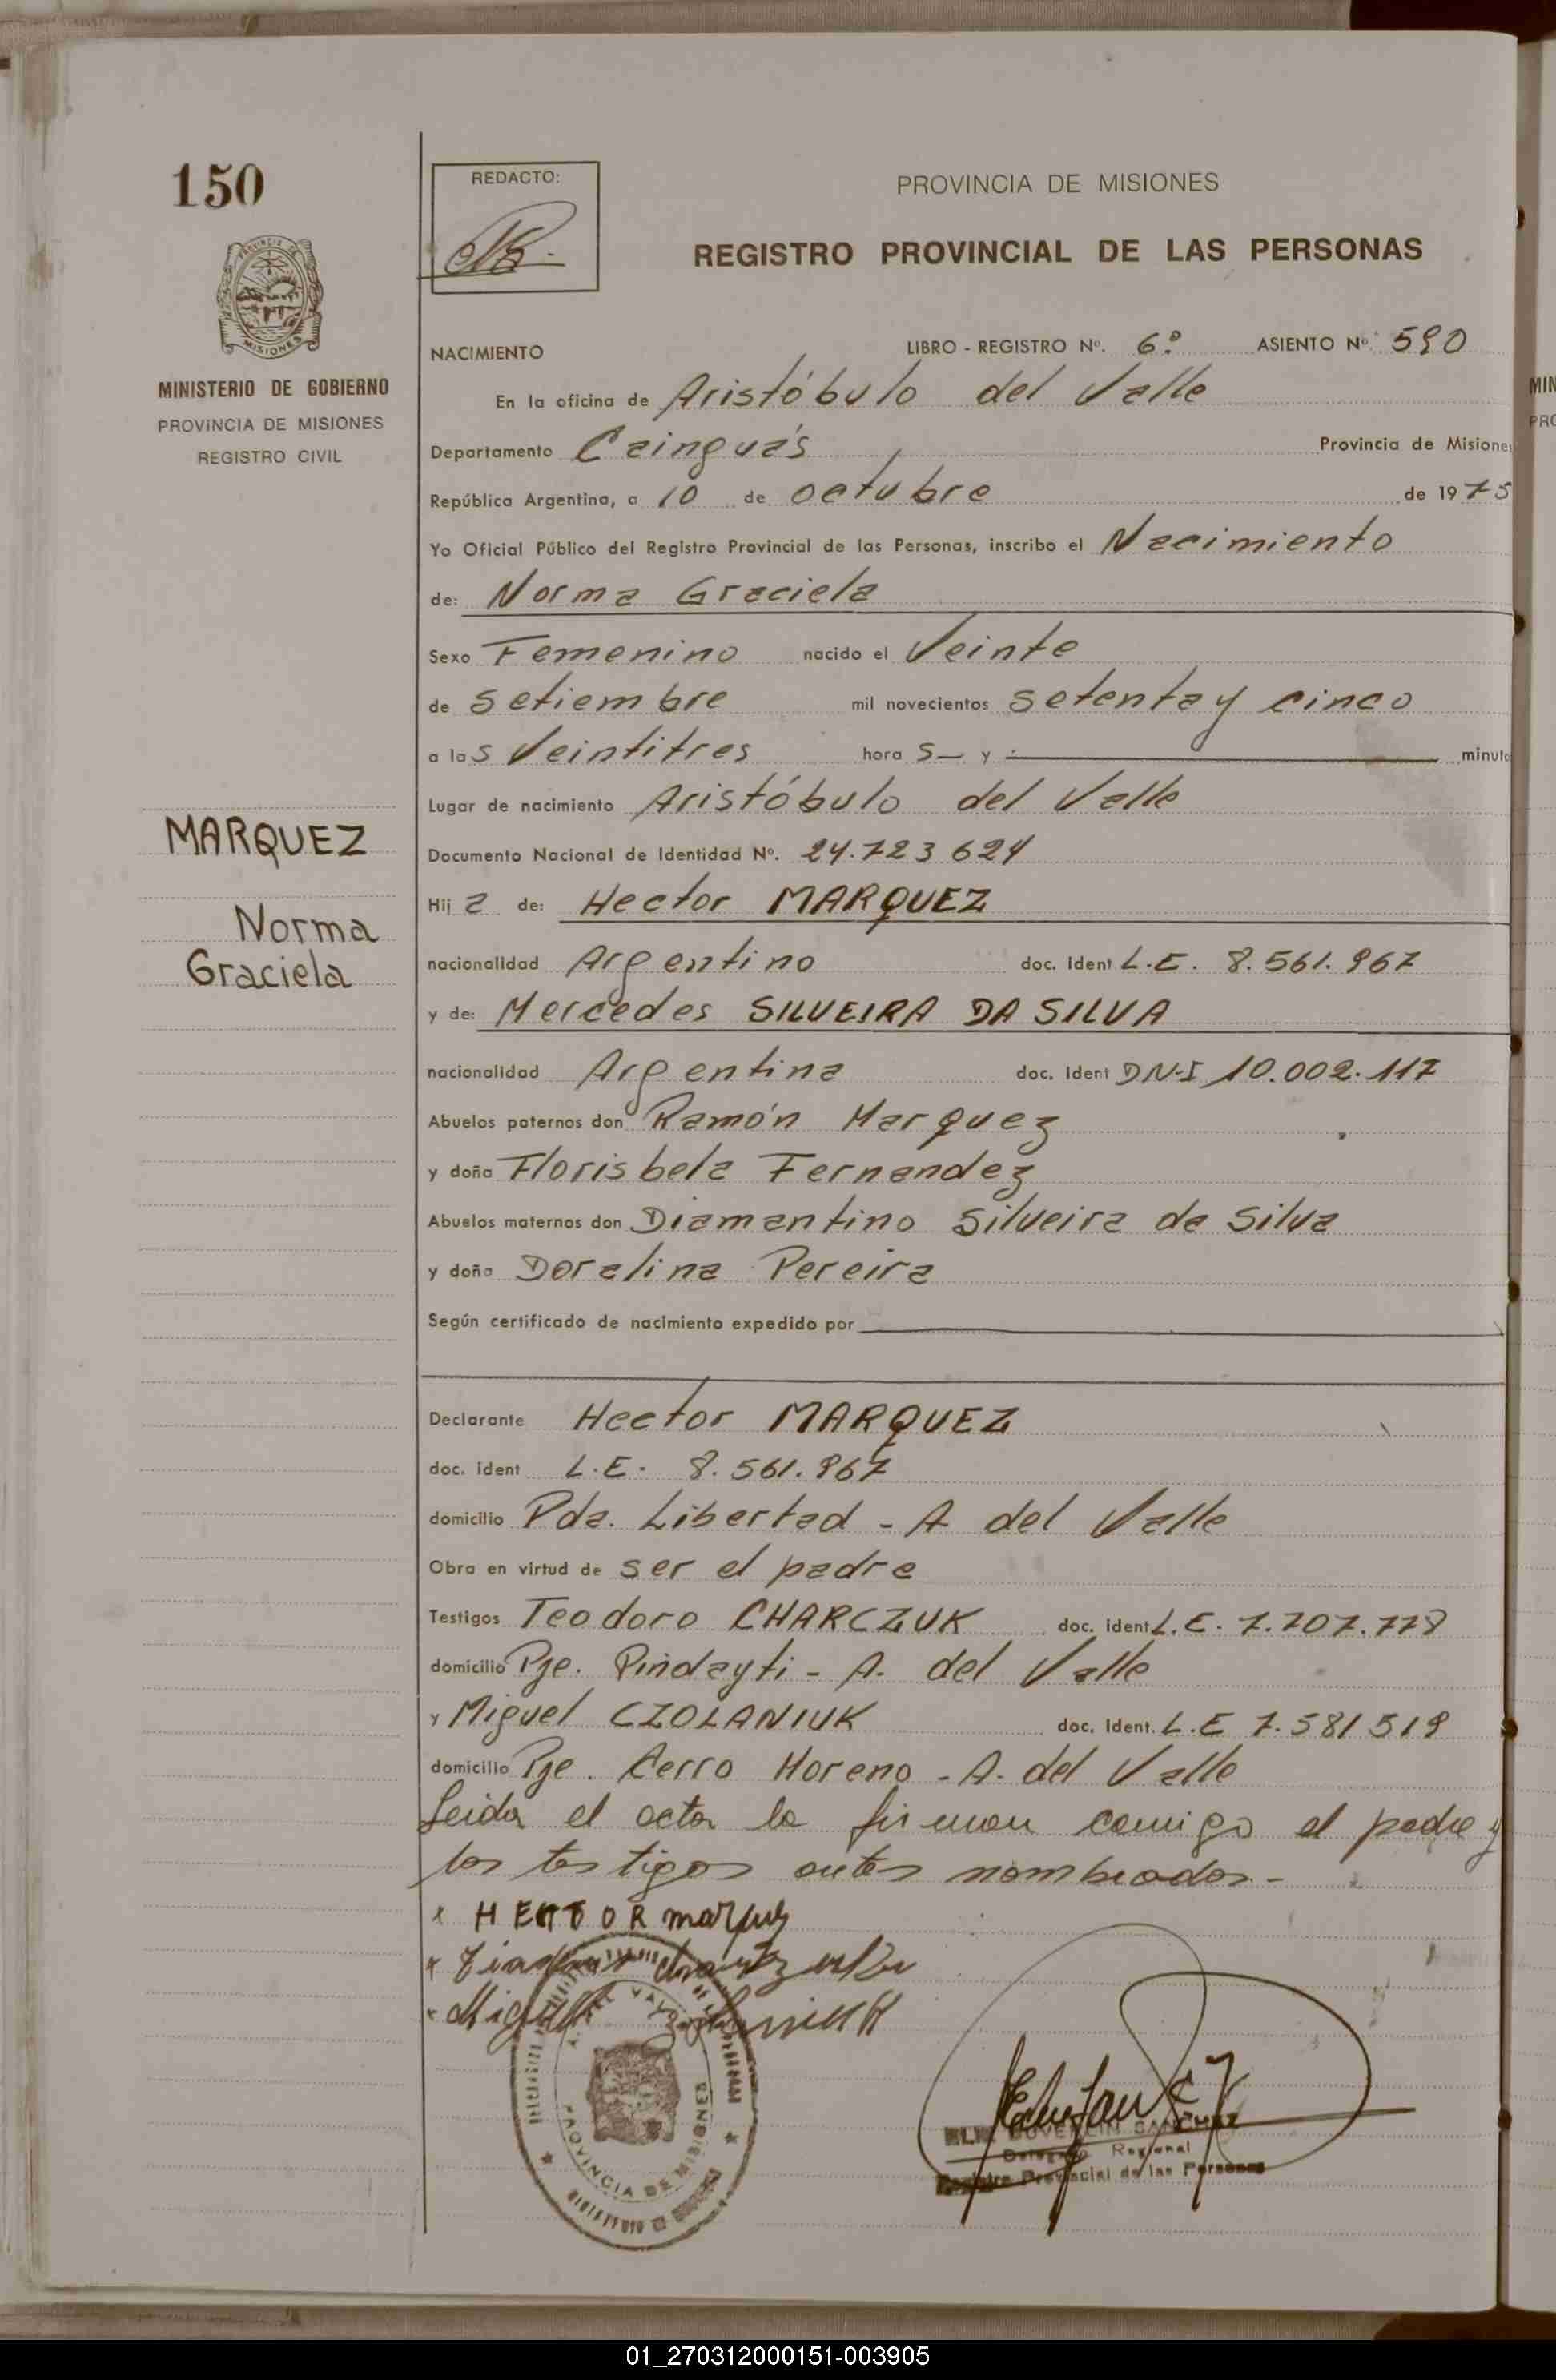 150
REDACTO:
PROVINCIA DE MISIONES
REGISTRO PROVINCIAL DE LAS PERSONAS
MISIONES
MINISTERIO DE GOBIERNO
PROVINCIA DE MISIONES
REGISTRO CIVIL
NACIMIENTO LIBRO - REGISTRO Nº. 6º ASIENTO Nº. 590
En la oficina de Aristóbulo del Valle
Departamento Cainguás Provincia de Misiones
República Argentina, a 10 de octubre de 1975
Yo Oficial Público del Registro Provincial de las Personas, inscribo el Nacimiento
de: Norma Graciela
Sexo Femenino nacido el Veinte
de Setiembre mil novecientos setenta y cinco
a las Veintitres horas y minuto
Lugar de nacimiento Aristóbulo del Valle
MARQUEZ
Norma
Graciela
Documento Nacional de Identidad Nº. 24.723624
Hija de: Hector MARQUEZ
nacionalidad Argentino doc. ident L.E. 8.561.967
y de: Mercedes SILVEIRA DA SILVA
nacionalidad Argentina doc. ident DN-I 10.002.117
Abuelos paternos don Ramón Marquez
y doña Florisbela Fernandez
Abuelos maternos don Diamantino Silveira da Silva
y doña Doralina Pereira
Según certificado de nacimiento expedido por
Declarante Hector MARQUEZ
doc. ident L.E. 8.561.967
domicilio Pda. Libertad - A del Valle
Obra en virtud de ser el padre
Testigos Teodoro CHARCZUK doc. ident L.E. 7.707.778
domicilio Pje. Pindayti - A. del Valle
y Miguel CZOLANIUK doc. Ident. L.E 7.581519
domicilio Pje. Cerro Moreno - A. del Valle
Leida el acta la firman comigo el padre y
los testigos antes nombrados.-
x HECTOR Marquez
PROVINCIA DE MISIONES
SANCHEZ
Delegado Regional
Registro Provincial de las Personas
MIN
PRO
01_270312000151-003905